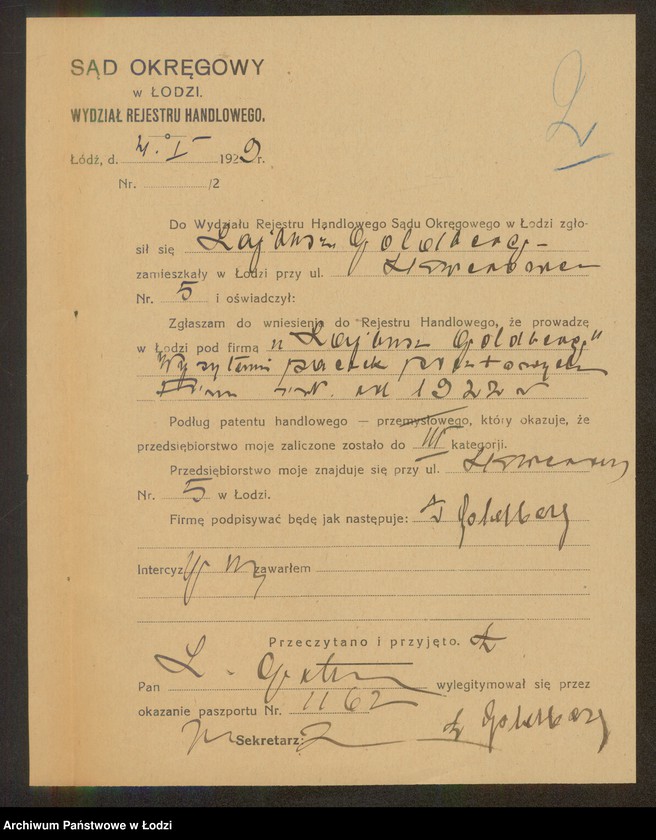 SĄD OKRĘGOWY
w ŁODZI.
WYDZIAŁ REJESTRU HANDLOWEGO.
2
Łódź, d. 4. I 1929 r.
Nr. /2
Do Wydziału Rejestru Handlowego Sądu Okręgowego w Łodzi zgło-
sił się Goldberg
zamieszkały w Łodzi przy ul.
Nr. 5 i oświadczył:
Zgłaszam do wniesienia do Rejestru Handlowego, że prowadzę
w Łodzi pod firmą „ Goldberg"
paczek pocztowych
Firma istn. od 1922 r
Podług patentu handlowego — przemysłowego, który okazuje, że
przedsiębiorstwo moje zaliczone zostało do III kategorji.
Przedsiębiorstwo moje znajduje się przy ul.
Nr. 5 w Łodzi.
Firmę podpisywać będę jak następuje: Goldberg
Intercyzy zawarłem
Przeczytano i przyjęto.
Pan wylegitymował się przez
okazanie paszportu Nr. 1162
Sekretarz: Goldberg
Archiwum Państwowe w Łodzi